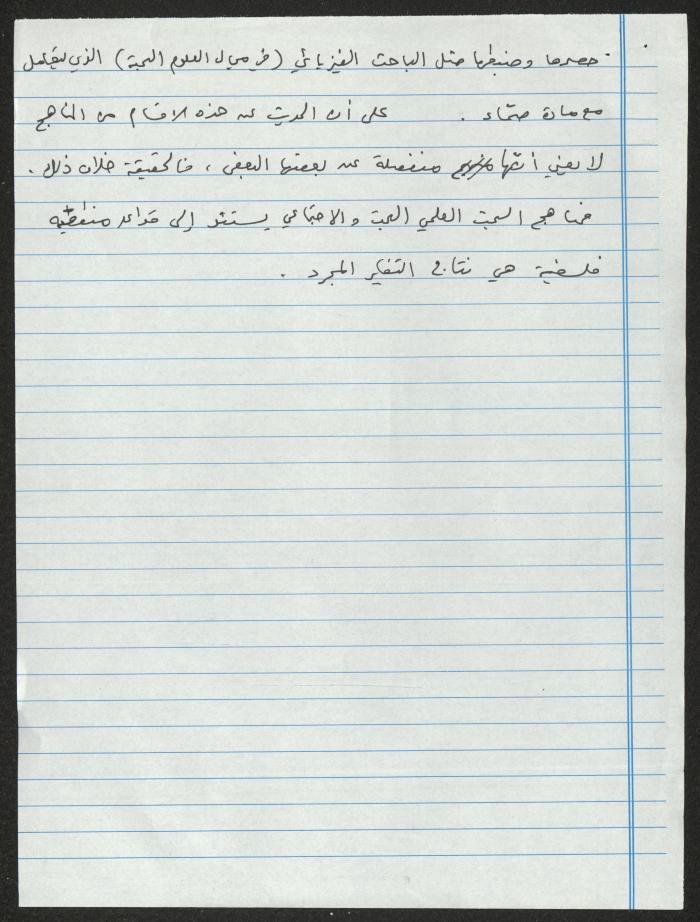 حصرها وضبطها مثل الباحث الفيزيائي (في مجال العلوم البحتة) الذي يتعامل
مع مادة صمّاء . على أن الحديث عن هذه الاقسام من المناهج
لا يعني أنّها منفصلة عن بعضها البعض ، فالحقيقة خلاف ذلك .
فمناهج البحث العلمي البحتة والاجتماعي يستند إلى قواعد منطقية
فلسفية هي نتاج التفكير المجرد .